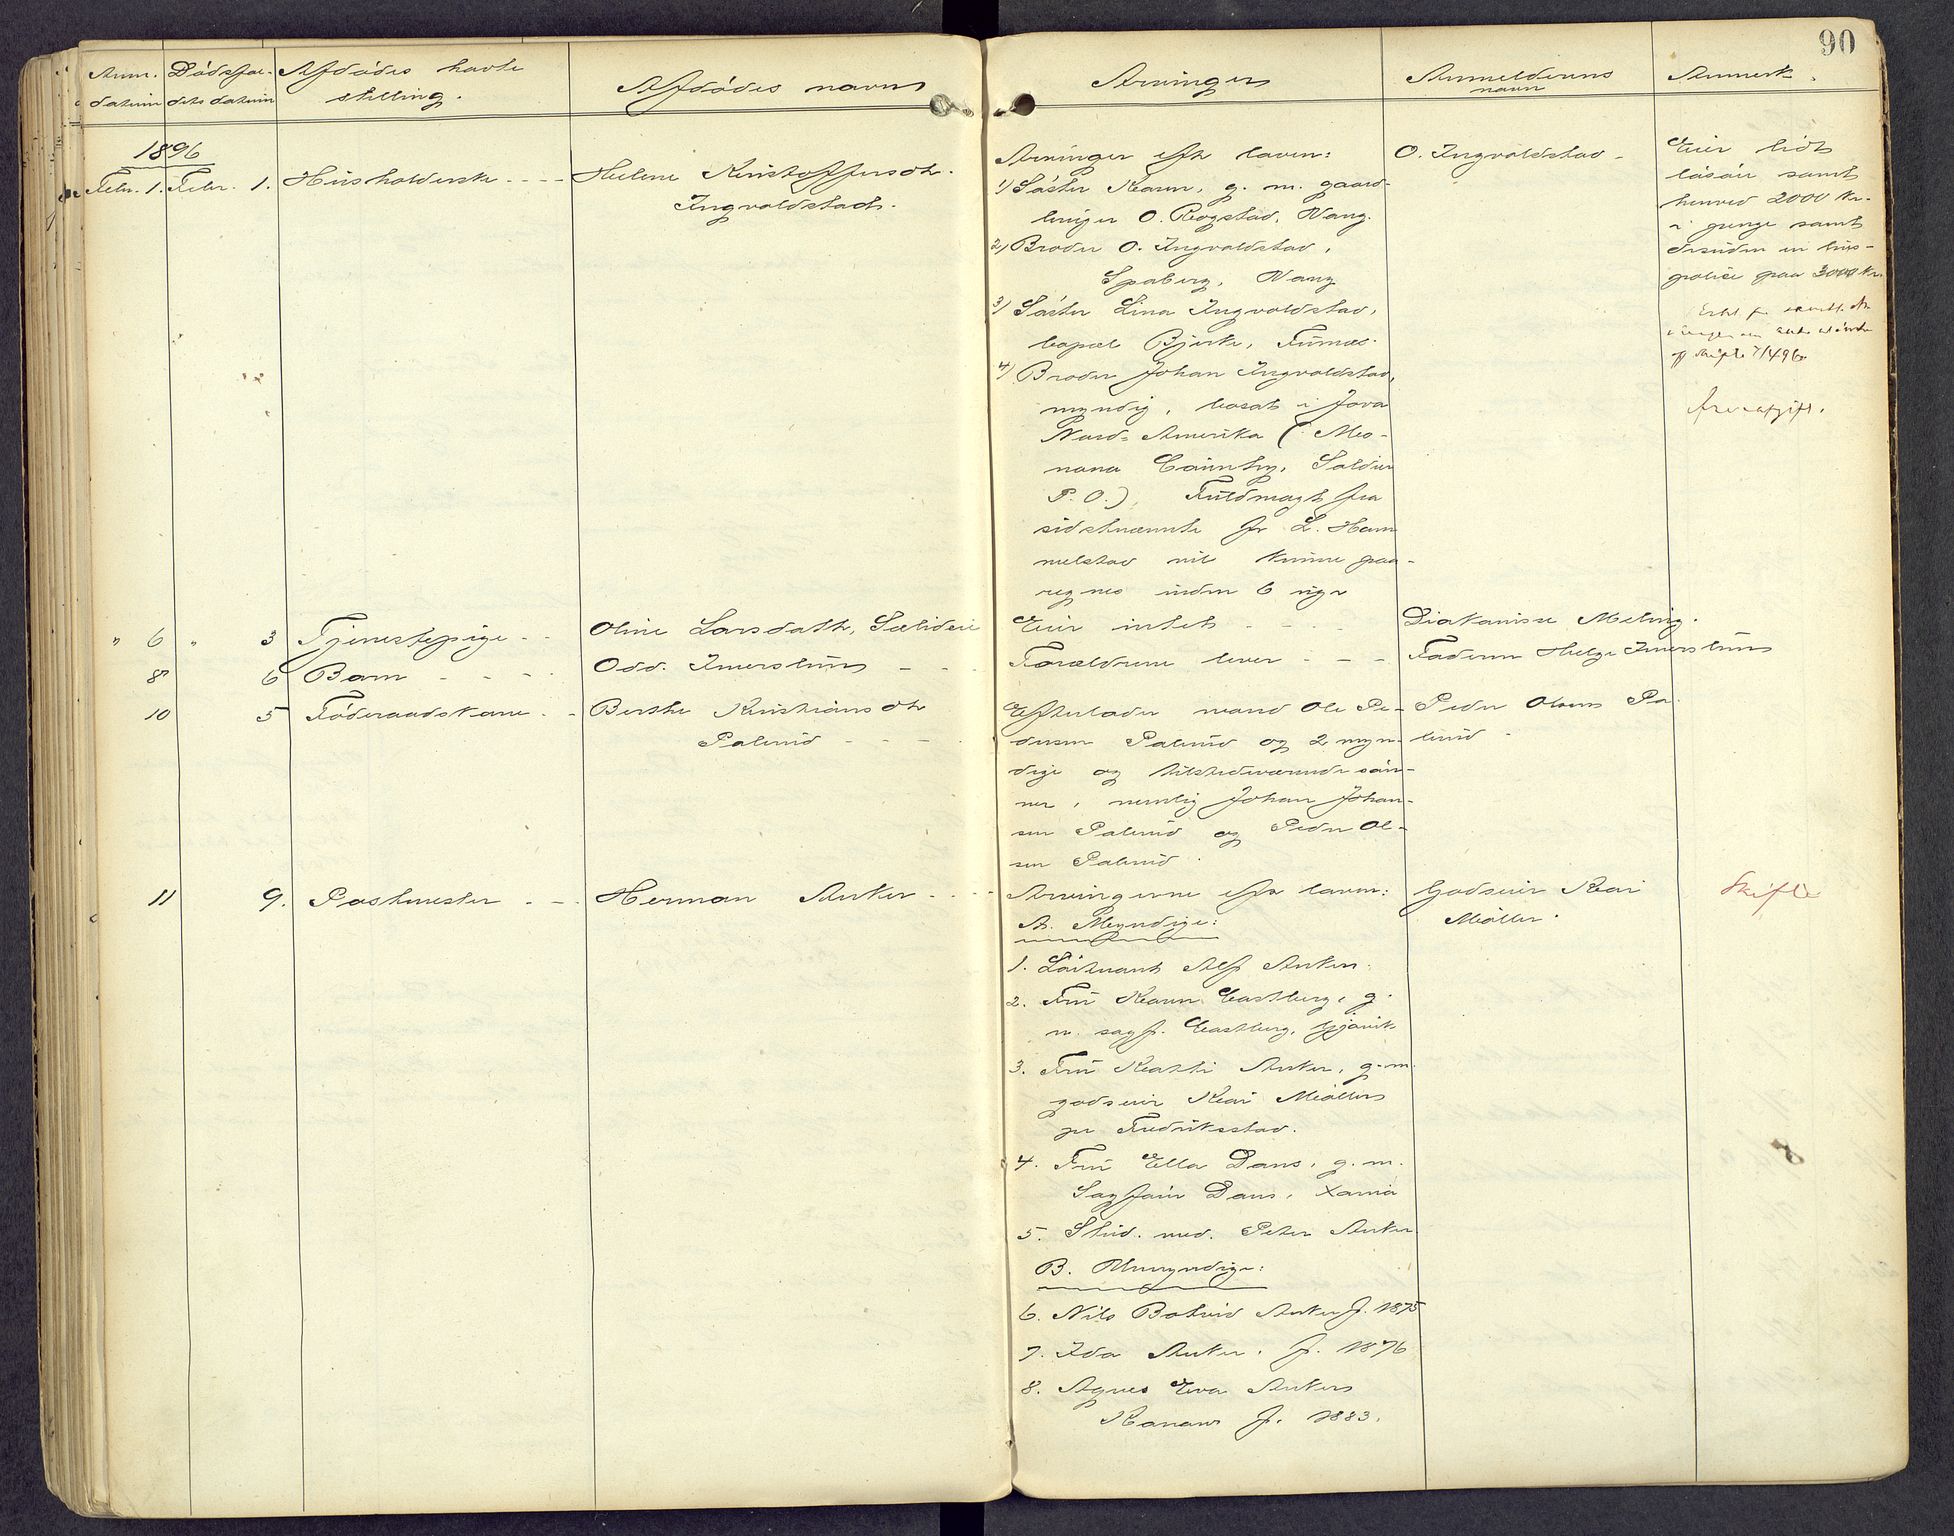 90
Anm. datum
Dødsfal- dets datum
Afdødes havte stilling.
Afdødes navn
Arvinger
Anmelderens navn
Anmerk.
1896
Febr. 1. Febr. 1. Husholderske - - - Helene Kristoffersdtr.
Ingvoldstad.
Arvinger efter loven:
1) Søster Karen, g. m. gaard-
bruger O. Rogstad, Vang.
2) Broder O. Ingvoldstad,
Spaberg, Vang
3) Søster Lina Ingvoldstad,
bopæl Bjerke, Furnæs.
4) Broder Johan Ingvoldstad,
myndig, bosat i Jova
Nord-Amerika (: Mo-
nona Country, Soldier
P. O.), Fuldmagt fra
sidstnævnte fr L. Ham
melstad vil kunne paa-
regnes inden 6 uger
O. Ingvoldstad -
Eier lidt
løsøre samt
henved 2000 Kr.
i penge samt
desuden en livs-
police paa 3000 Kr.
af skifte 7/4 96.
Arveafgift.
" 6 " 3 Tjenestepige - - Oline Larsdatter, Sælideie
Eier intet - - - -
Diakonisse Meling.
8 6 Barn - - - - Odd. Imerslund - - -
Forældrene lever - - -
Faderen Helge Imerslund
10 5 Føderaadskone - - Berthe Kristiansdtr
Palerud - - - -
Efterlader mand Ole Pe-
dersen Palerud og 2 myn-
dige og tilstedeværende søn-
ner, nemlig Johan Johan-
sen Palerud og Peder Ol-
sen Palerud.
Peder Olsen Pa-
lerud -
11 9. Postmester - - - Herman Anker - - - -
Arvingerne efter loven:
A. Myndige:
1. Løitnant Alf Anker.
2. Fru Karen Castberg, g.
m. sagf. Castberg, Gjøvik
3. Fru Kathi Anker, g. m.
godseier Kai Møller
pr Fredriksstad.
4. Fru Ella Dons, g. m.
Sagfører Dons, Xania
5. Stud. med. Peter Anker
B. Umyndige:
6. Nils Botvid Anker f. 1875
7. Ida Anker, f. 1876
8. Agnes Eva Anker
f. 1883.
Godseier Kai
Møller.
Skifte